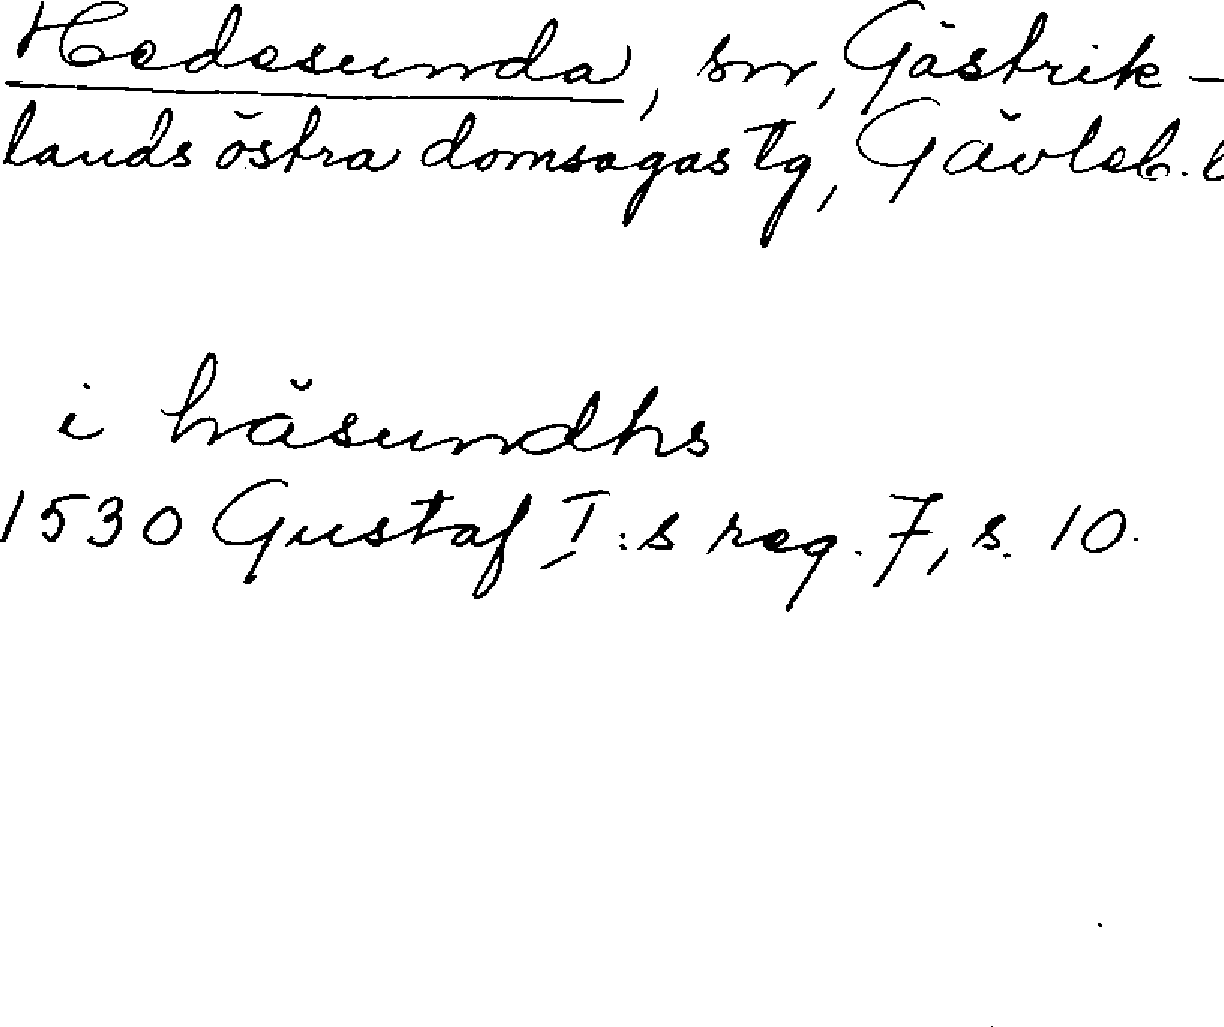 Hedesunda, sn, Gästrik-
lands östra domsagas tg, Gävleb. l
i häsundhs
1530 Gustaf I:s reg. 7, s. 10.